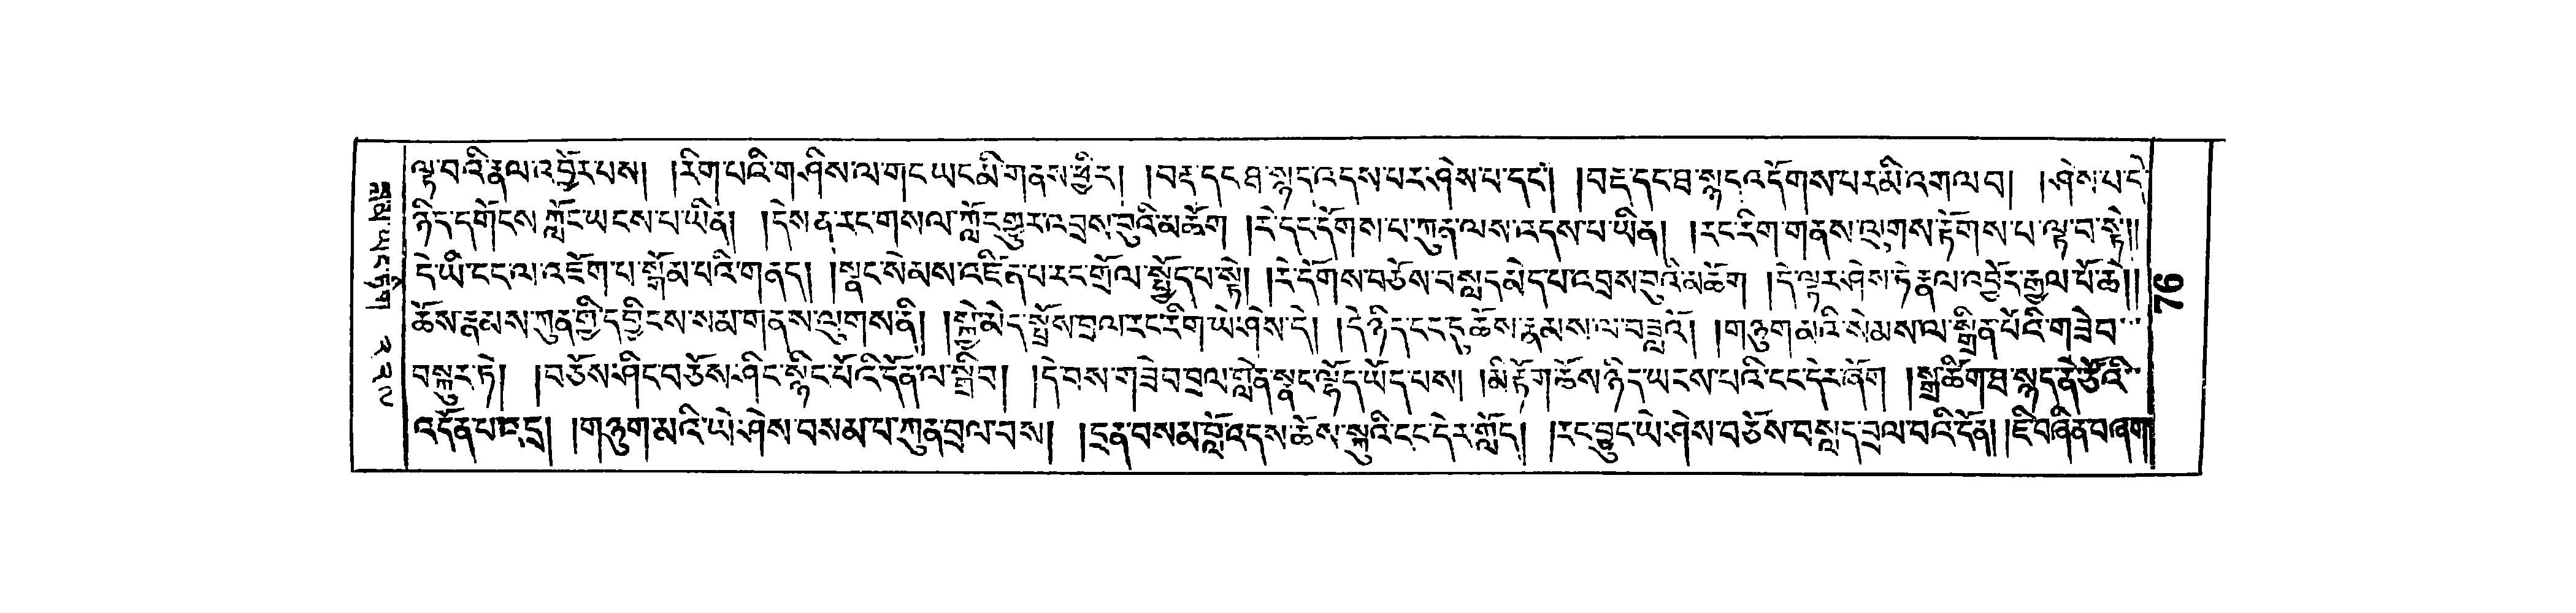 ལྟ་བའི་རྣལ་འབྱོར་པས། །རིག་པའི་གཤིས་ལ་གང་ཡང་མི་གནས་ཕྱིར། །བརྡ་དང་ཐ་སྙད་འདས་པར་ཤེས་པ་དང༌། །བརྡ་དང་ཐ་སྙད་འདོགས་པར་མི་འགལ་བ། །ཤེས་པ་དེ་
ཉིད་དགོངས་ཀློང་ཡངས་པ་ཡིན། །དེས་ན་རང་གསལ་ཀློང་གྱུར་འབྲས་བུའི་མཆོག །རེ་དང་དོགས་པ་ཀུན་ལས་འདས་པ་ཡིན། །རང་རིག་གནས་ལུགས་རྟོགས་པ་ལྟ་བ་སྟེ།།
དེ་ཡི་ངང་ལ་འཇོག་པ་སྒོམ་པའི་གནད། །སྣང་སེམས་འཛིན་པ་རང་གྲོལ་སྤྱོད་པ་སྟེ། །རེ་དོགས་བཅོས་བསླད་མེད་པ་འབྲས་བུའི་མཆོག །དེ་ལྟར་ཤེས་ཏེ་རྣལ་འབྱོར་རྒྱལ་པོ་ཆེ།།
ཆོས་རྣམས་ཀུན་གྱི་དབྱིངས་སམ་གནས་ལུགས་ནི། །སྐྱེ་མེད་སྤྲོས་བྲལ་རང་རིག་ཡེ་ཤེས་དེ། །དེ་ཉིད་ངང་དུ་ཆོས་རྣམས་ལ་བཟླའོ། །གཉུག་མའི་སེམས་ལ་སྒྲིན་པོའི་གཟེབ་
བསྐུར་ཏེ། །བཅོས་ཤིང་བཅོས་ཤིང་སྙིང་པོའི་དོན་ལ་སྒྲིབ། །དེ་བས་གཟེབ་བྲལ་གློན་སྣང་ལྷོད་ཡོད་པས། །མི་རྟོག་ཆོས་ཉིད་ཡངས་པའི་ངང་དེར་ཞོག །སྒྲ་ཚིག་ཐ་སྙད་ནེ་ཙོའི་
འདོན་པ་ཁྲ། །གཉུག་མའི་ཡེ་ཤེས་བསམ་པ་ཀུན་བྲལ་བས། །དྲན་བསམ་བློ་འདས་ཆོས་སྐུའི་ངང་དེར་ཀློད། །རང་བྱུང་ཡེ་ཤེས་བཅོས་བསླད་བྲལ་བའི་དོན། །ཇི་བཞིན་བཞག